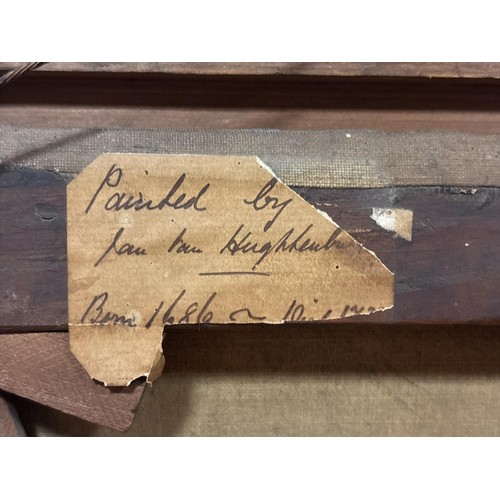 Painted by
Jan Van Hughtenbu
Born 1686 ~ Died 17